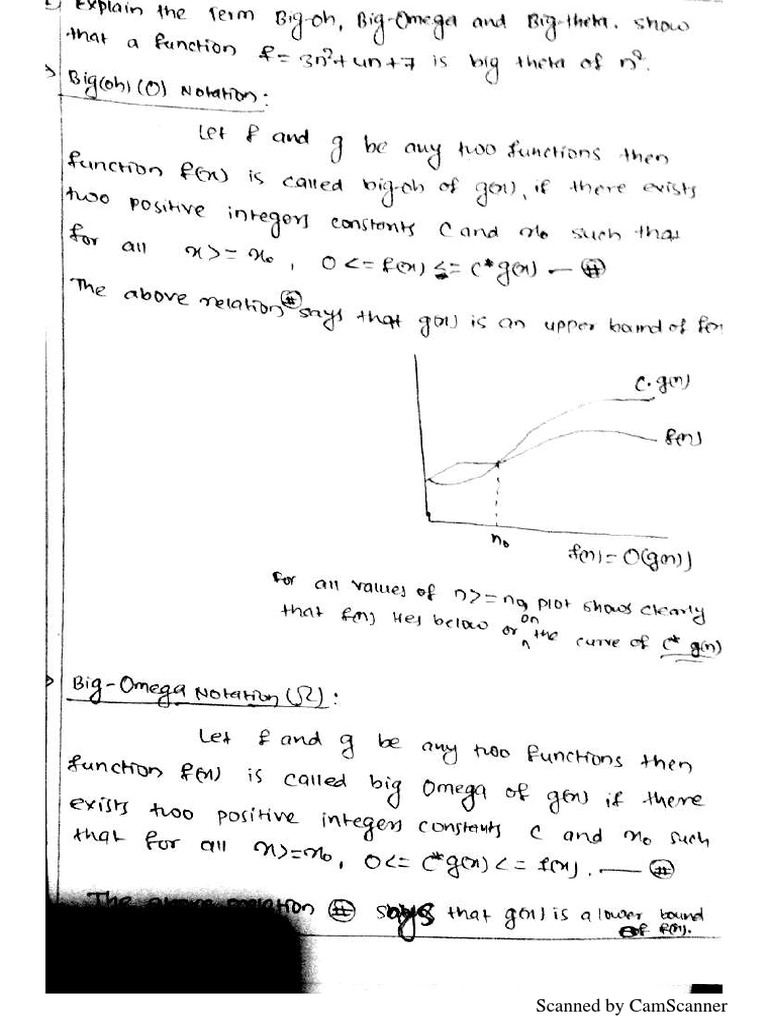 Explain the Term Big-oh, Big-Omega and Big-theta. show
that a function f = 3n²+4n+7 is big theta of n².
Big(oh) (O) Notation:
Let f and g be any two functions then
function f(x) is called big-oh of g(x), if there exists
two positive integers constants C and x₀ such that
for all x>=x₀, 0<=f(x)<=C*g(x) — #
The above relation # says that g(x) is an upper bound of f(x
C.g(n)
f(n)
n₀
f(n)=O(g(n))
For all values of n>=n₀, plot shows clearly
that f(n) lies below or on the curve of C* g(n)
Big-Omega Notation (Ω):
Let f and g be any two functions then
function f(x) is called big Omega of g(x) if there
exists two positive integers constants C and x₀ such
that for all x>=x₀, 0<= C*g(x)<= f(x). — #
The above relation # says that g(x) is a lower bound
of f(x).
Scanned by CamScanner